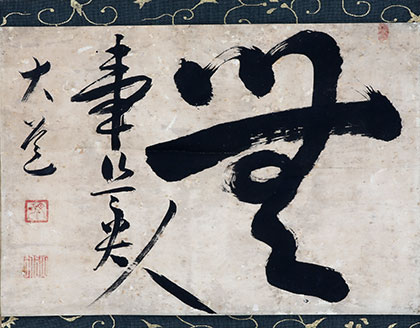 無
事是貴人
大